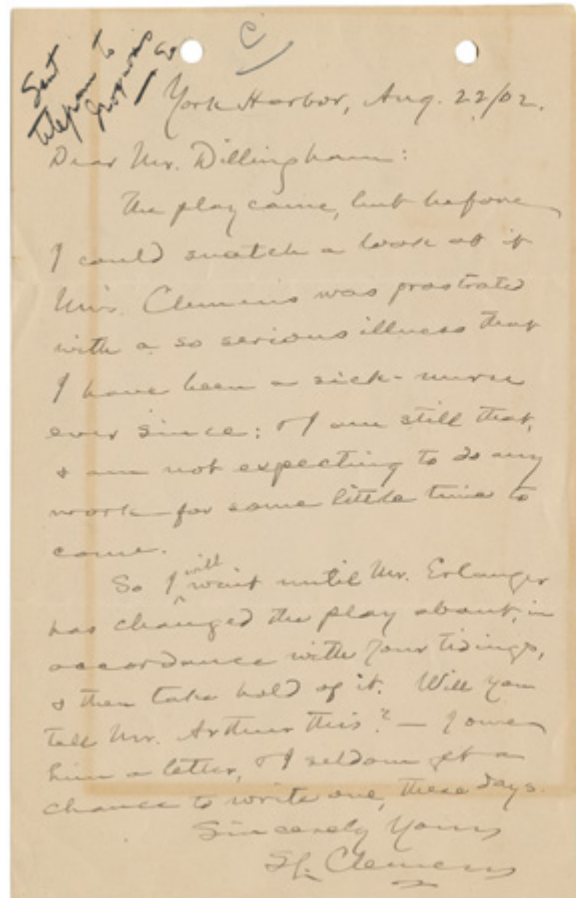 Sent
telegram to
York Harbor, Aug. 22/02.
Dear Mr. Dillingham:
The play came, but before
I could snatch a look at it
Mrs. Clemens was prostrated
with a so serious illness that
I have been a sick-nurse
ever since: & I am still that,
& am not expecting to do any
work for some little time to
come.
So I will wait until Mr. Erlanger
has changed the play about, in
accordance with your tidings,
& then take hold of it. Will you
tell Mr. Arthur this? — I owe
him a letter, & I seldom get a
chance to write one, these days.
Sincerely Yours
SL. Clemens